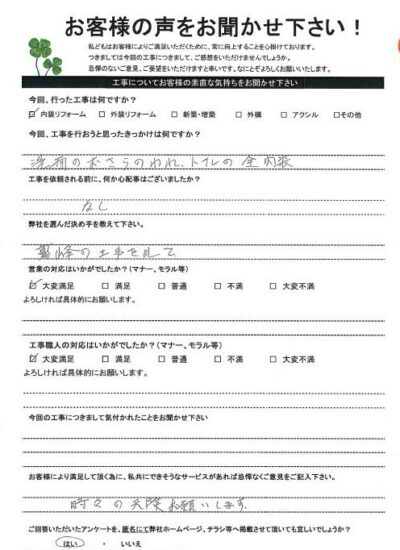 お客様の声をお聞かせ下さい！
私どもはお客様によりご満足いただくために、常に向上することを心掛けております。
つきましては今回の工事につきまして、ご感想をいただけませんでしょうか。
忌憚のないご意見、ご要望をいただけますと幸いです。なにとぞよろしくお願いいたします。
工事についてお客様の素直な気持ちをお聞かせ下さい
今回、行った工事は何ですか？
☑ 内装リフォーム □ 外装リフォーム □ 新築・増築 □ 外構 □ アクシル □その他
今回、工事を行おうと思ったきっかけは何ですか？
洗面のおさらのわれ、トイレの全内装
工事を依頼される前に、何か心配事はございましたか？
なし
弊社を選んだ決め手を教えて下さい。
の工事を見て
営業の対応はいかがでしたか？（マナー、モラル等）
☑ 大変満足 □ 満足 □ 普通 □ 不満 □ 大変不満
よろしければ具体的にお願いします。
工事職人の対応はいかがでしたか？（マナー、モラル等）
☑ 大変満足 □ 満足 □ 普通 □ 不満 □ 大変不満
よろしければ具体的にお願いします。
今回の工事につきまして気付かれたことをお聞かせ下さい
お客様により満足して頂く為に、私共にできそうなサービスがあれば忌憚なくご意見をご記入下さい。
時々の点検お願いします。
ご回答いただいたアンケートを、匿名にて弊社ホームページ、チラシ等へ掲載させて頂いても宜しいでしょうか？
はい ・ いいえ